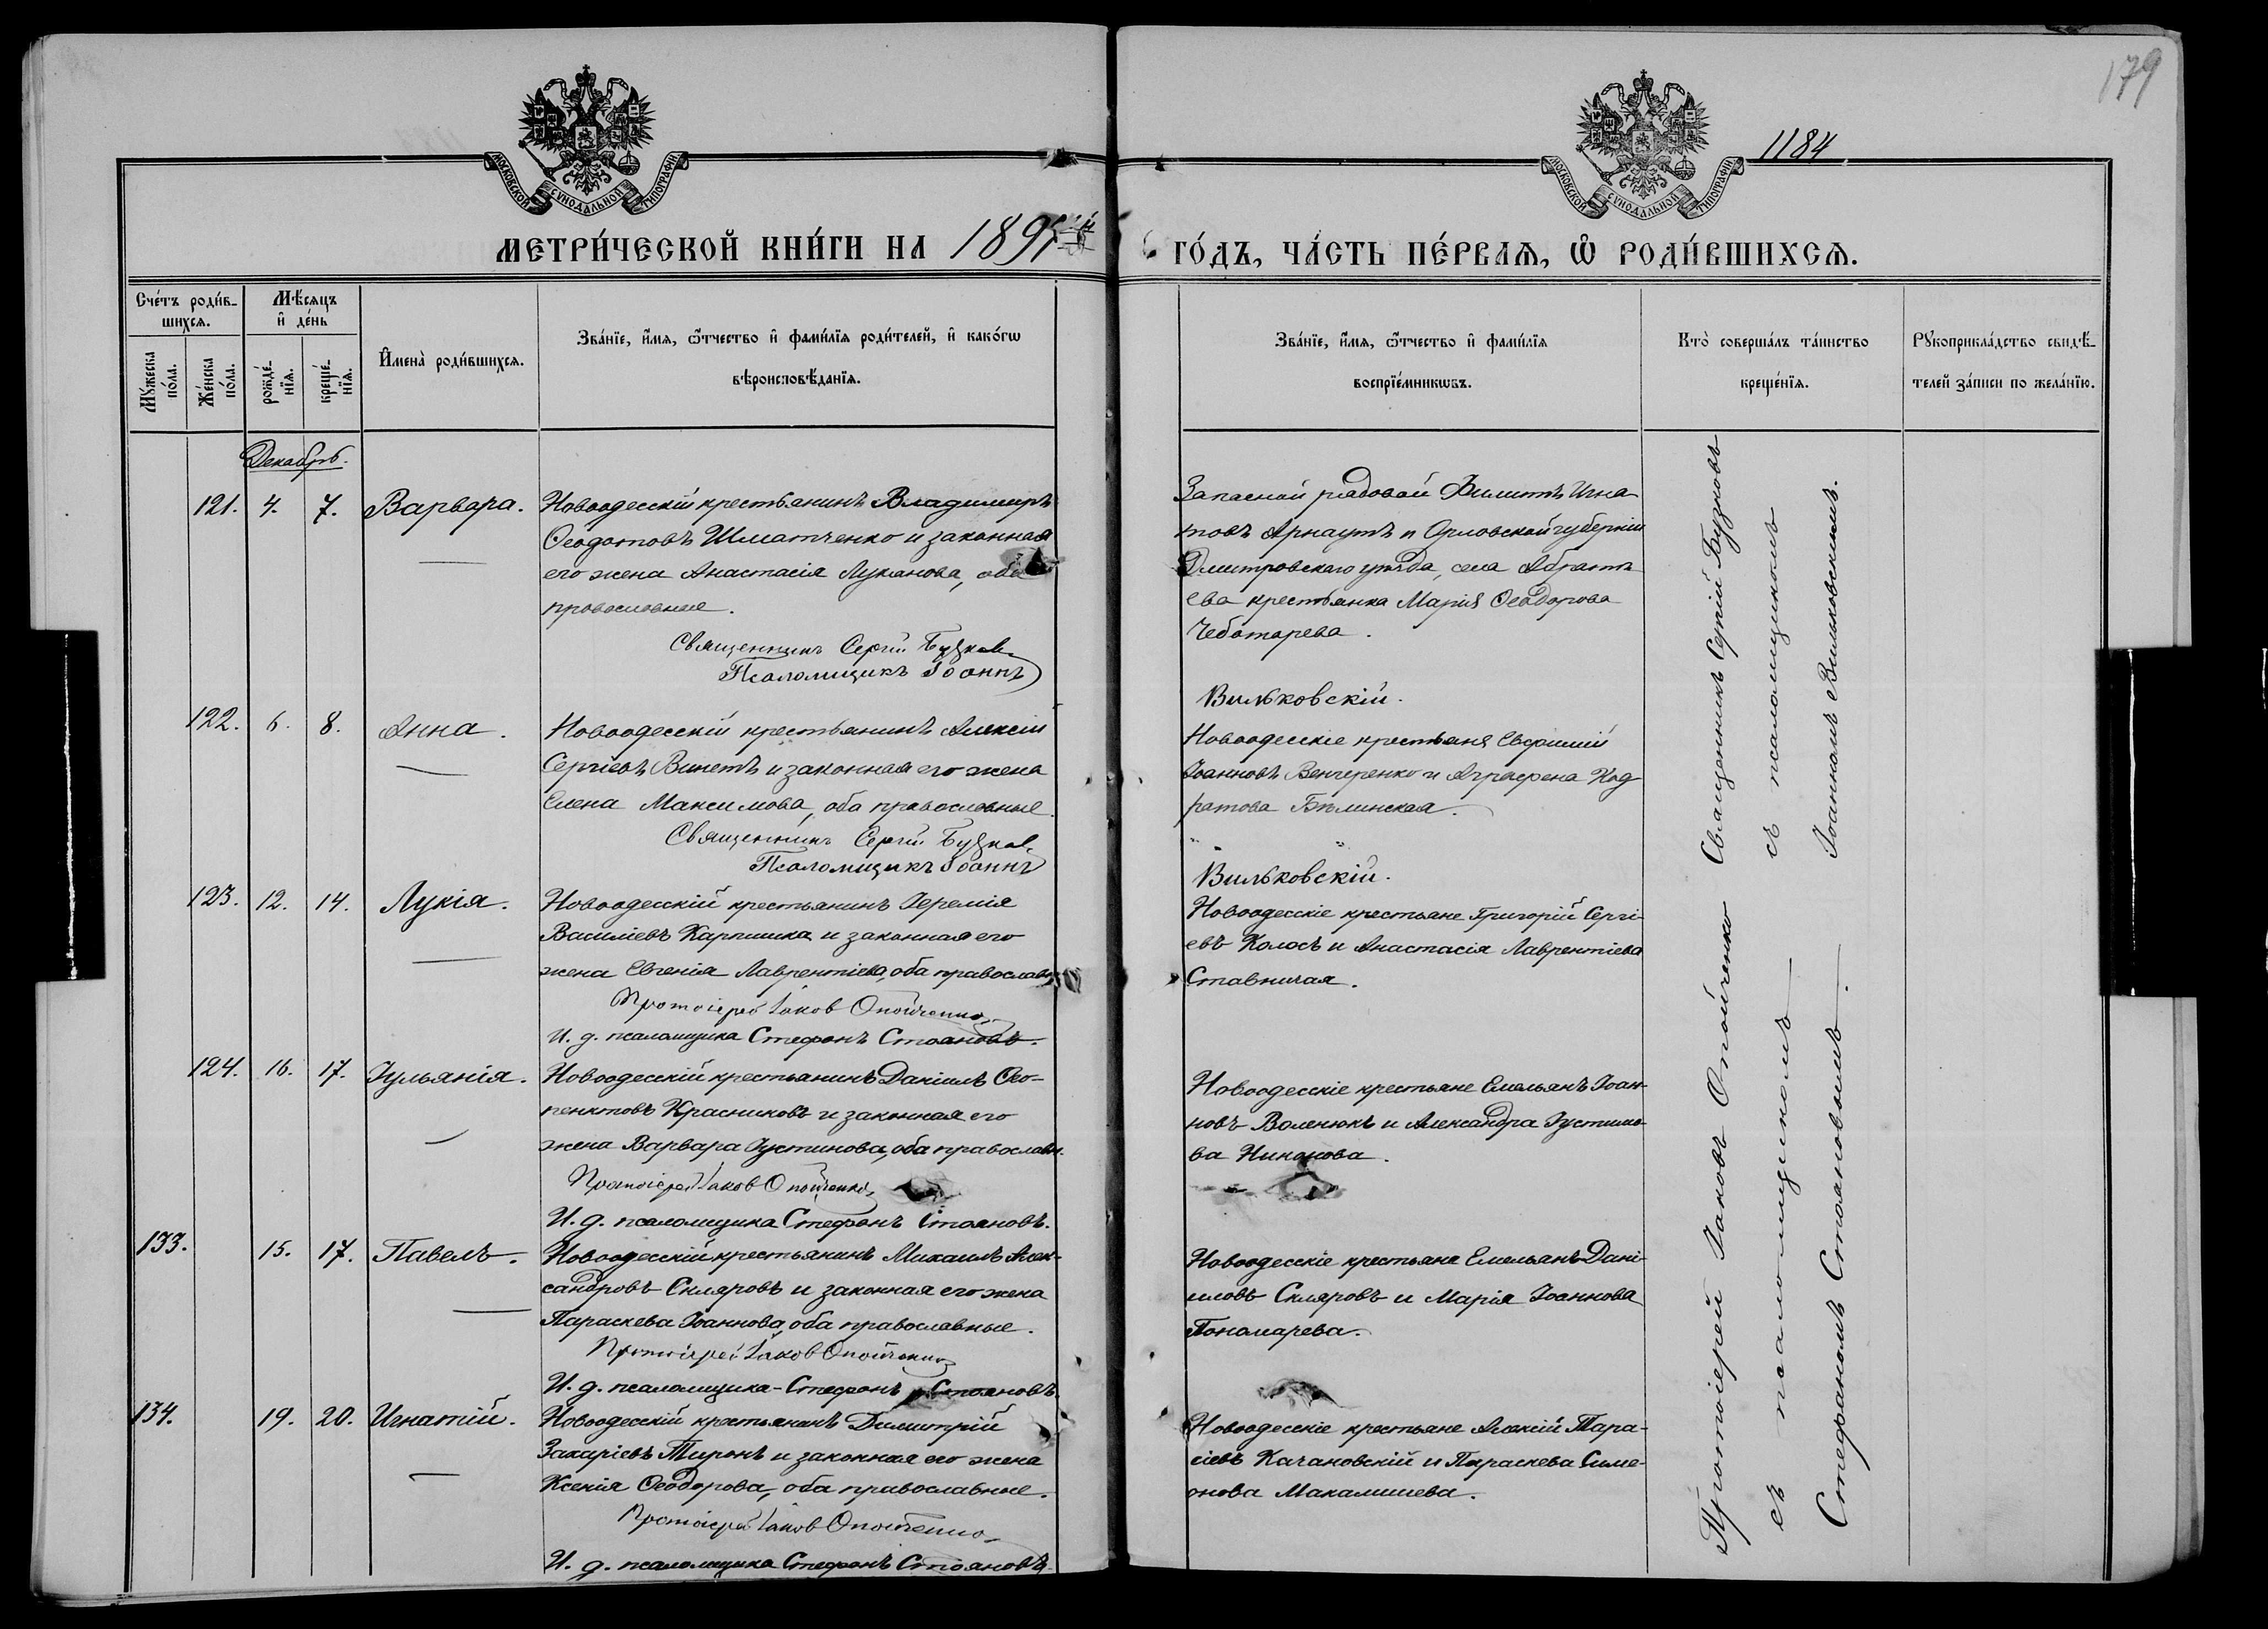 179
1184
МОСКОВСКОЙ СѴНОДАЛЬНОЙ ТИПОГРАФІИ
МОСКОВСКОЙ СѴНОДАЛЬНОЙ ТИПОГРАФІИ
МЕТРИ́ЧЕСКОЙ КНИ́ГИ НА 1895 й ГО́ДЪ, ЧА́СТЬ ПЕ́РВАѦ, Ѽ РОДИ́ВШИХСѦ.
Сче́тъ роди́в-
шихсѧ.
Мѣ́сѧцъ
и҆ де́нь
Му́жеска по́ла.
Же́нска по́ла.
рожде́-
нїѧ.
креще́-
нїѧ.
И҆мена̀ роди́вшихсѧ.
Зва́нїе, и҆́мѧ, ѻ҆́тчество и҆ фами́лїѧ роди́телей, и҆ како́гѡ
вѣроисповѣ́данїѧ.
Зва́нїе, и҆́мѧ, ѻ҆́тчество и҆ фами́лїѧ
воспрїе́мникѡвъ.
Кто̀ соверша́лъ та́инство
креще́нїѧ.
Рꙋкоприкла́дство свидѣ́-
телей за́писи по жела́нїю.
Декабрь.
121. 4. 7. Варвара.
Новоодесскій крестьянинъ Владимиръ
Ѳеодотовъ Шматченко и законная
его жена Анастасія Лукянова, оба
православные.
Священникъ Сергій Бузков
Псаломщикъ Іоаннъ
Запасной рядовой Филиппъ Игна
товъ Арнаутъ и Орловской губерніи
Дмитровскаго уѣзда, села
ева крестьянка Марія Ѳеодорова
Чеботарева.
Вильковскій.
122. 6. 8. Анна.
Новоодесскій крестьянинъ Алексій
Сергіевъ Винетъ и законная его жена
Елена Максимова, оба православные.
Священникъ Сергій Бузков
Псаломщикъ Іоаннъ
Новоодесскіе крестьяне Евфимій
Іоанновъ Венгеренко и Агрофена Код
ратова Бѣлинская.
Вильковскій.
123. 12. 14. Лукія.
Новоодесскій крестьянинъ Іеремія
Василіевъ Карпишка и законная его
жена Евгенія Лаврентіева, оба православн
Протоіерей Іаков Опойченко
И. д. псаломщика Стефанъ Стояновъ.
Новоодесскіе крестьяне Григорій Сергі-
евъ Колосъ и Анастасія Лаврентіева
Ставничая.
124. 16. 17. Іульянія.
Новоодесскій крестьянинъ Даніилъ Ѳео-
пемптовъ Красниковъ и законная его
жена Варвара Іустинова, оба православн.
Протоіерей Іаков Опойченко
И. д. псаломщика Стефанъ Стояновъ.
Новоодесскіе крестьяне Емельянъ Іоан-
новъ Воленюкъ и Александра Іустино-
ва
133. 15. 17. Павелъ.
Новоодесскій крестьянинъ Михаилъ Алек-
сандровъ Скляровъ и законная его жена
Параскева Іоаннова, оба православные.
Протоіерей Іаков Опойченко
И. д. псаломщика - Стефанъ Стояновъ.
Новоодесскіе крестьяне Емельянъ Дані-
иловъ Скляровъ и Марія Іоаннова
Пономарева.
134. 19. 20. Игнатій.
Новоодесскій крестьянинъ Димитрій
Захаріевъ Тиронъ и законная его жена
Ксенія Ѳеодорова, оба православные.
Протоіерей Іаков Опойченко
И. д. псаломщика Стефанъ Стояновъ.
Новоодесскіе крестьяне Алексій Тара-
сіевъ Качановскій и Параскева Симе-
онова Макалишева.
Священникъ Сергій Бузковъ
съ псаломщикомъ
Іоанномъ Вильковскимъ.
Протоіерей Іаковъ Опойченко
съ псаломщикомъ
Стефаномъ Стояновымъ.